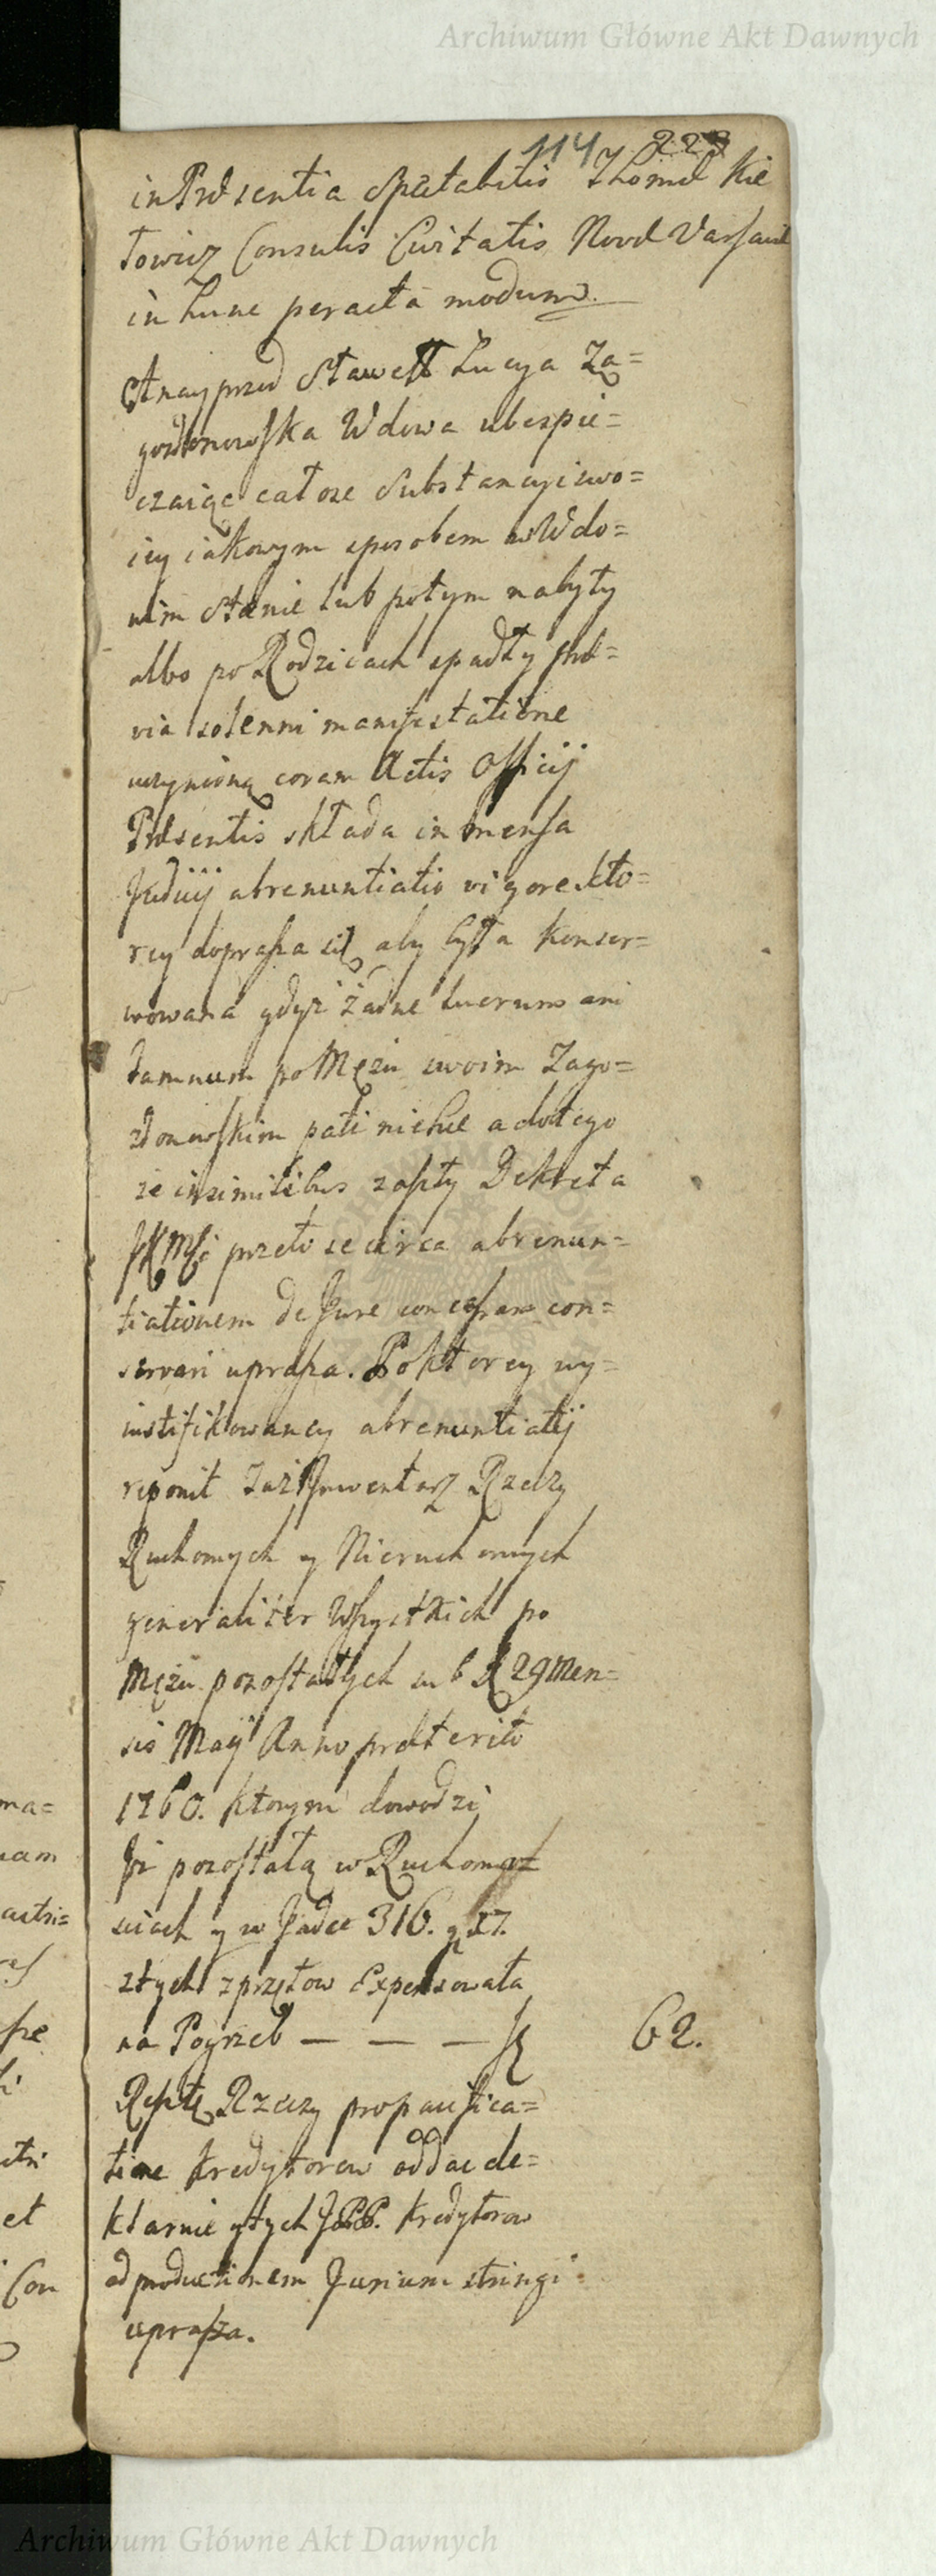 Archiwum Główne Akt Dawnych
114 223
in Præsentia Spectabilis Thomæ Kie
towicz Consulis Civitatis Novæ Varsaviæ
in hunc peracta modum.
A nayprzed Stawetł Lucya Za=
gozdonowska Wdowa ubespie=
czaiąc całosc Substancyi swo=
iey iakowym sposobem w Wdo=
wim stanie lub potym nabyty
albo po Rodzicach spadły præ=
via solenni manifestatione
uczynioną coram Actis Officij
Præsentis składa in mensa
Judicij abrenuntiatio vigore kto=
rey doprasza się aby była konser=
wowana gdyż żadne lucrum ani
damnum po Mężu swoim Zago=
zdonowskim pati niechce a do tego
ze in similibus zaszły Dekreta
JKMsci przeto se circa abrenun=
tiationem de Jure concessam con=
servari uprasza. Po ktorey wy=
iustifikowaney abrenuntiatij
reponit Jusz Inwentarz Rzeczy
Ruchomych y Nieruchomych
generaliter Wszystkich po
Mężu pozostałych sub D 29 Men=
sis Maij Anno præterito
1760. ktorym dowodzi
Iż pozostałą w Ruchomo=
sciach y w Jadce 316. g 27.
złych z przętow Expensowała
na Pogrzeb — — — 62.
Resztę Rzeczy pro pacifica=
tione Kredytorow oddac de=
klaruie y tych JPP. Kredytorow
ad productionem Jurium stringi
uprasza.
ma=
nam
et
Con
Archiwum Główne Akt Dawnych